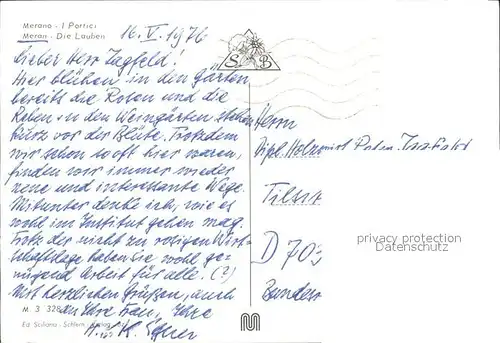 Merano - I Portici
Meran - Die Lauben
16. V. 1976
S B
Lieber Herr Zagfeld!
Hier blühen in den Gärten
bereits die Rosen und die
Reben in den Weingärten stehen
kurz vor der Blüte. Trotzdem
wir schon so oft hier waren,
finden wir immer wieder
neue und interessante Wege.
Mitunter denke ich, wie es
wohl im Institut gehen mag.
Trotz der nicht zu rosigen Wirt-
schaftslage haben Sie wohl ge-
nügend Arbeit für alle. (?)
Mit herzlichen Grüßen, auch
an Ihre Frau, Ihre
Herrn
Dipl. Holzwirt
D 703
privacy protection
Datenschutz
M 3 328
Ed. Sciliano - Schlern